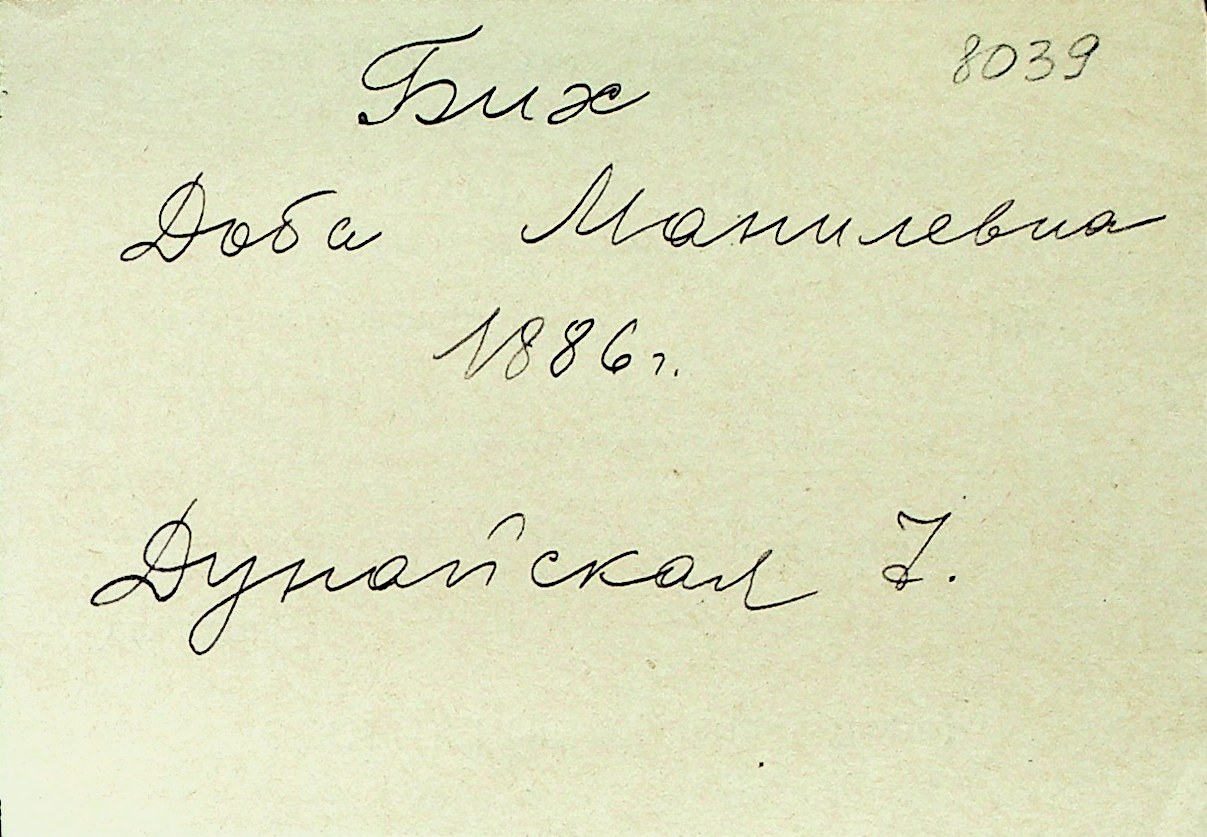 Бих 8039
Доба Манилевна
1886 г.
Дунайская 7.